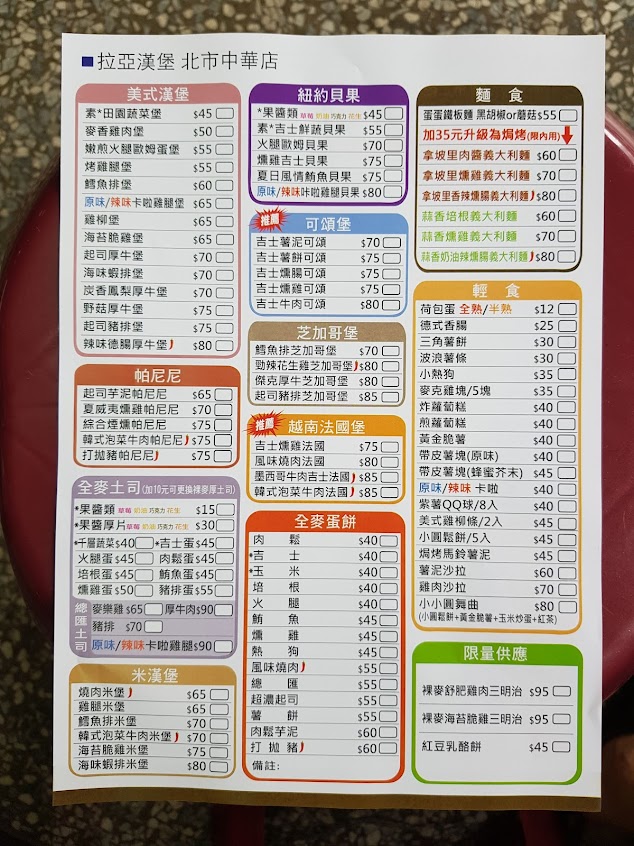 拉亞漢堡 北市中華店
美式漢堡
素*田園蔬菜堡 $45
麥香雞肉堡 $50
嫩煎火腿歐姆蛋堡 $55
烤雞腿堡 $55
鱈魚排堡 $60
原味/辣味卡啦雞腿堡 $65
雞柳堡 $65
海苔脆雞堡 $65
起司厚牛堡 $70
海味蝦排堡 $70
炭香鳳梨厚牛堡 $70
野菇厚牛堡 $75
起司豬排堡 $75
辣味德腸厚牛堡 $80
帕尼尼
起司芋泥帕尼尼 $65
夏威夷燻雞帕尼尼 $70
綜合煙燻帕尼尼 $75
韓式泡菜牛肉帕尼尼 $75
打拋豬帕尼尼 $75
全麥土司(加10元可更換裸麥厚土司)
*果醬類 草莓 奶油 巧克力 花生 $15
*果醬厚片 草莓 奶油 巧克力 花生 $30
*千層蔬菜$40 *吉士蛋$45
火腿蛋$45 肉鬆蛋$45
培根蛋$45 鮪魚蛋$45
燻雞蛋$50 豬排蛋$55
總匯土司
麥樂雞$65 厚牛肉$90
豬排 $70
原味/辣味卡啦雞腿$90
米漢堡
燒肉米堡 $65
雞腿米堡 $65
鱈魚排米堡 $70
韓式泡菜牛肉米堡 $70
海苔脆雞米堡 $75
海味蝦排米堡 $80
紐約貝果
*果醬類 草莓 奶油 巧克力 花生 $45
素*吉士鮮蔬貝果 $55
火腿歐姆貝果 $70
燻雞吉士貝果 $75
夏日風情鮪魚貝果 $75
原味/辣味咔啦雞腿貝果 $80
推薦
可頌堡
吉士薯泥可頌 $70
吉士薯餅可頌 $75
吉士燻腸可頌 $75
吉士燻雞可頌 $75
吉士牛肉可頌 $80
芝加哥堡
鱈魚排芝加哥堡 $70
勁辣花生雞芝加哥堡 $80
傑克厚牛芝加哥堡 $80
起司豬排芝加哥堡 $85
推薦
越南法國堡
吉士燻雞法國 $75
風味燒肉法國 $80
墨西哥牛肉吉士法國 $85
韓式泡菜牛肉法國 $85
全麥蛋餅
肉鬆 $40
*吉士 $40
*玉米 $40
培根 $40
火腿 $40
鮪魚 $45
燻雞 $45
熱狗 $45
風味燒肉 $55
總匯 $55
超濃起司 $55
薯餅 $55
肉鬆芋泥 $60
打拋豬 $60
備註:
麵食
蛋蛋鐵板麵 黑胡椒or蘑菇$55
加35元升級為焗烤(限內用)
拿坡里肉醬義大利麵 $60
拿坡里燻雞義大利麵 $70
拿坡里香辣燻腸義大利麵 $80
蒜香培根義大利麵 $60
蒜香燻雞義大利麵 $70
蒜香奶油辣燻腸義大利麵 $80
輕食
荷包蛋 全熟/半熟 $12
德式香腸 $25
三角薯餅 $30
波浪薯條 $30
小熱狗 $35
麥克雞塊/5塊 $35
炸蘿蔔糕 $40
煎蘿蔔糕 $40
黃金脆薯 $40
帶皮薯塊(原味) $40
帶皮薯塊(蜂蜜芥末) $45
原味/辣味 卡啦 $40
紫薯QQ球/8入 $40
美式雞柳條/2入 $45
小圓鬆餅/5入 $45
焗烤馬鈴薯泥 $45
薯泥沙拉 $60
雞肉沙拉 $70
小小圓舞曲 $80
(小圓鬆餅+黃金脆薯+玉米炒蛋+紅茶)
限量供應
裸麥舒肥雞肉三明治 $95
裸麥海苔脆雞三明治 $95
紅豆乳酪餅 $45